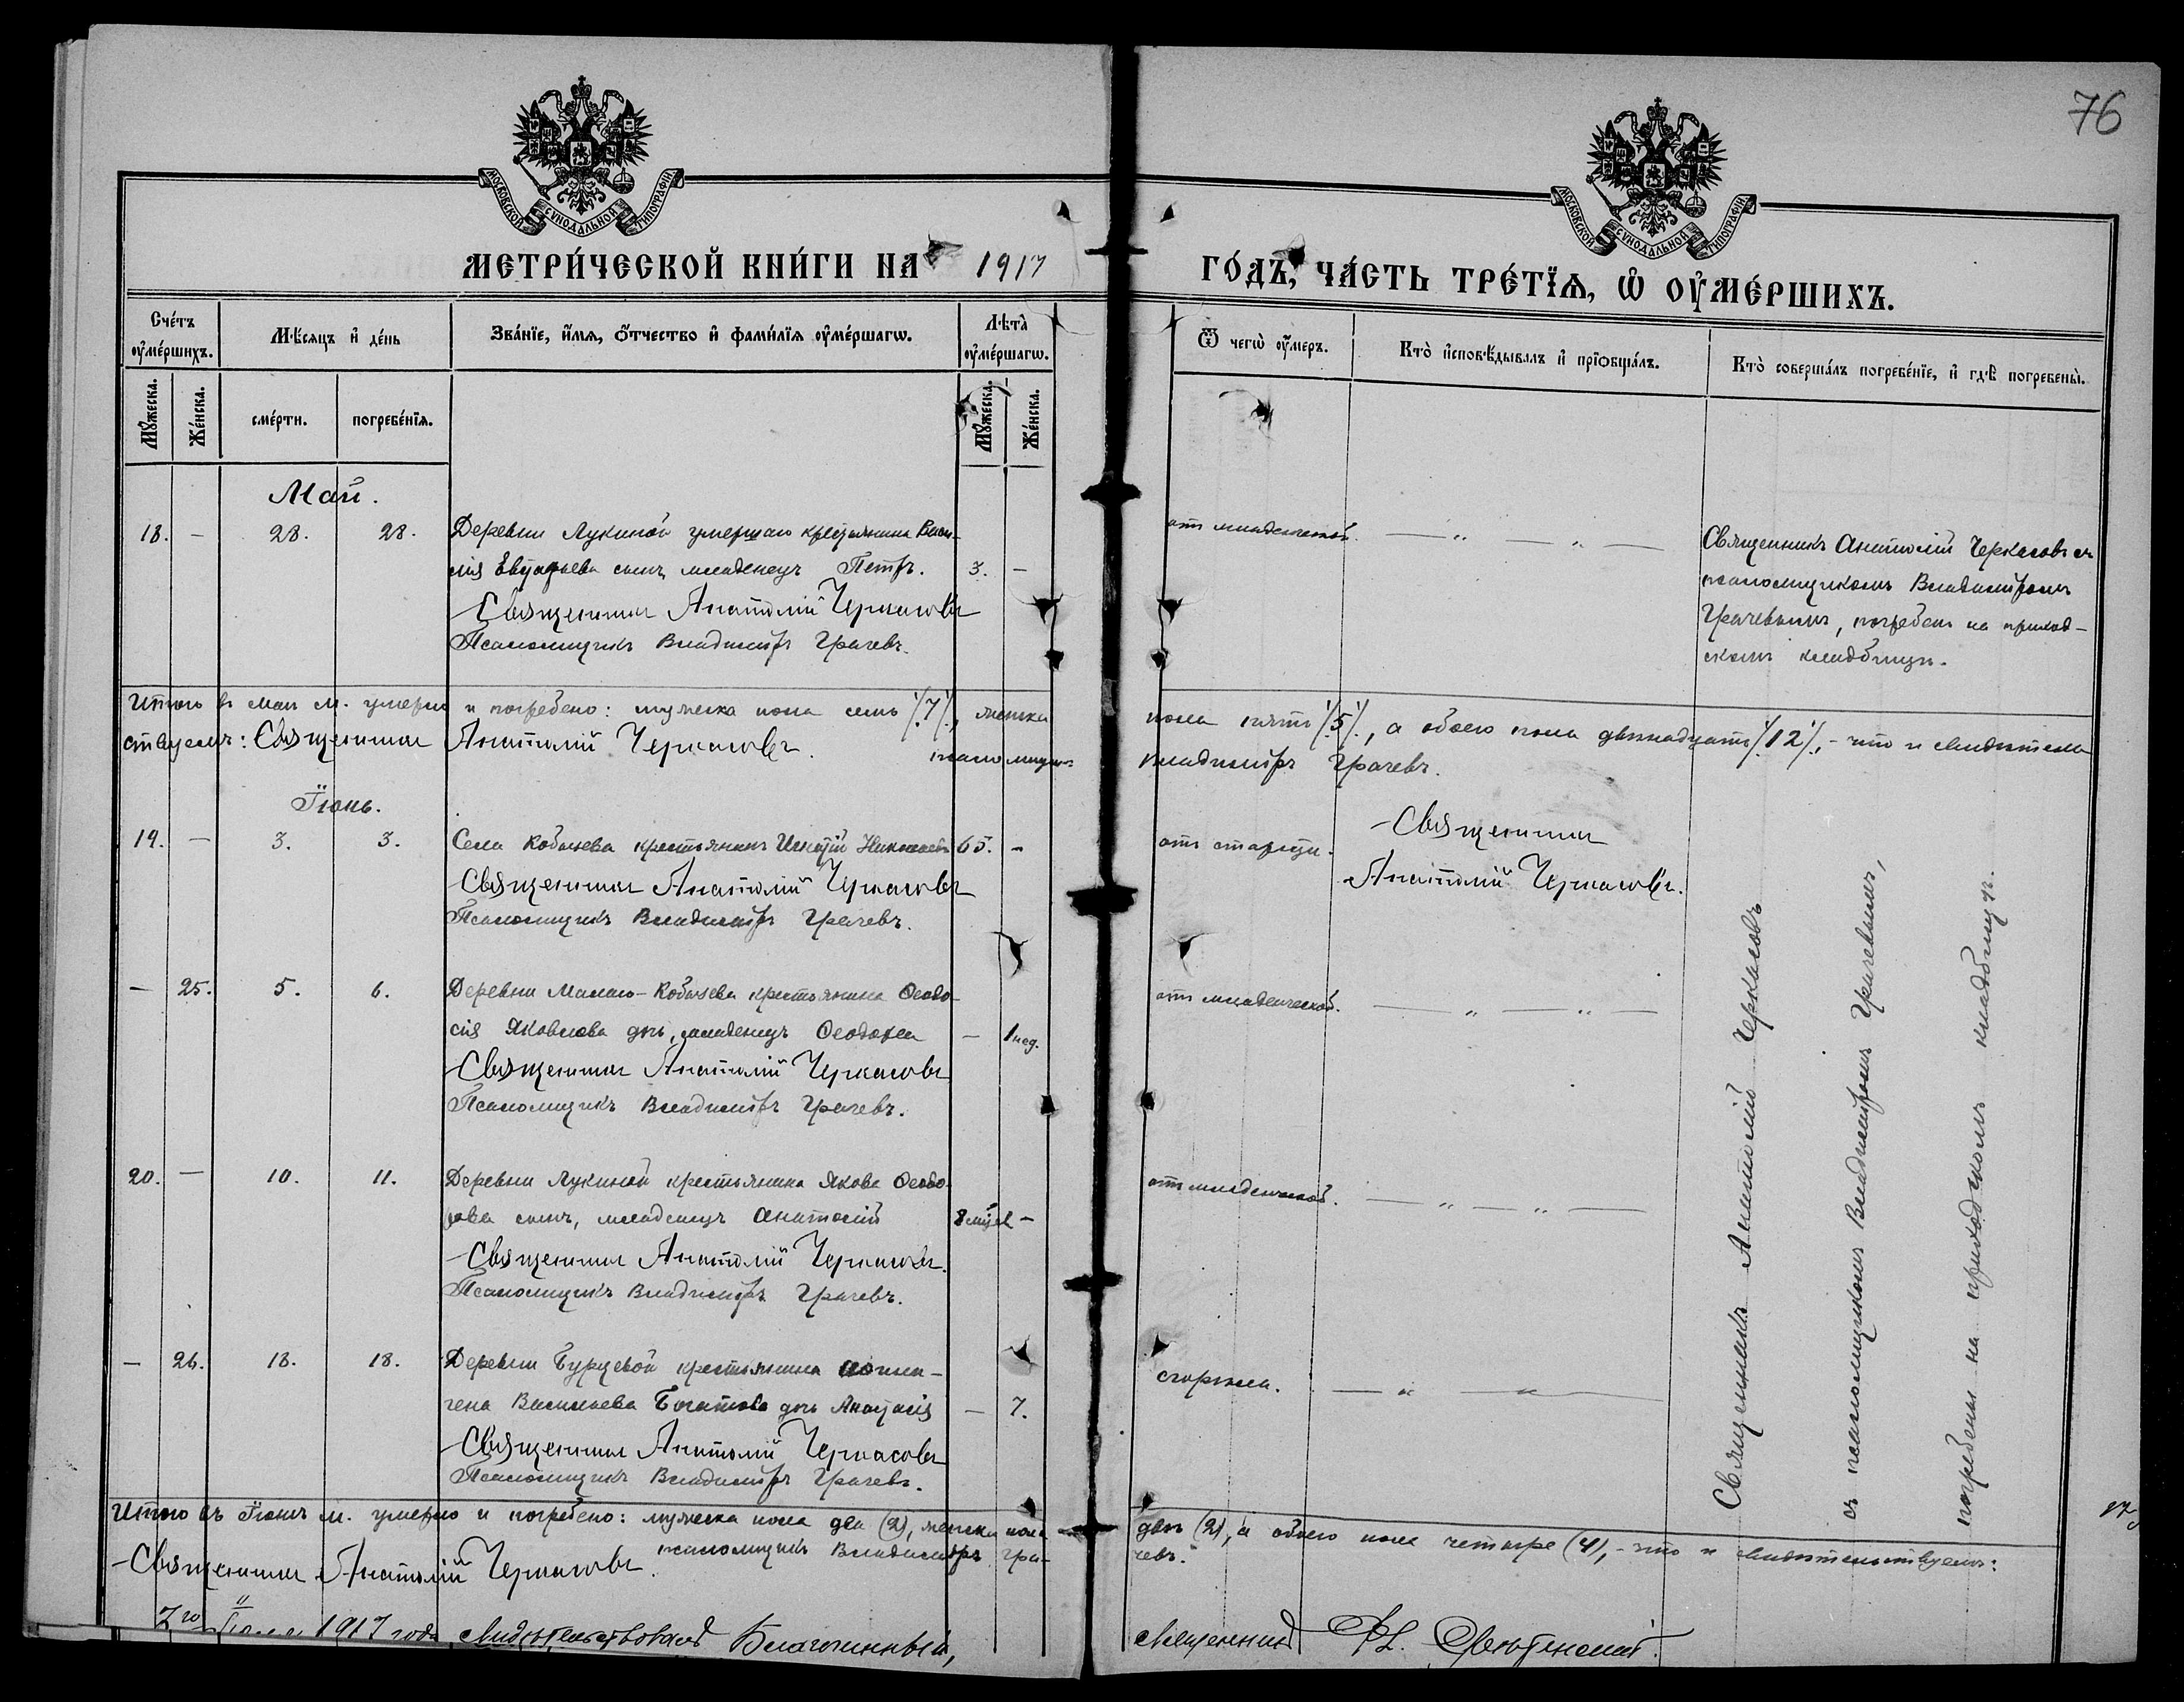 76
МОСКОВСКОЙ СѴНОДАЛЬНОЙ ТИПОГРАФІИ
МОСКОВСКОЙ СѴНОДАЛЬНОЙ ТИПОГРАФІИ
МЕТРИ́ЧЕСКОЙ КНИ́ГИ НА 1917
ГО́ДЪ, ЧА́СТЬ ТРЕ́ТЇѦ, Ѡ҆ ОУ҆МЕ́РШИХЪ.
Сче́тъ оу҆ме́ршихъ.
Мꙋ́жеска.
Же́нска.
Мѣ́сяцъ и҆ де́нь
сме́рти.
погребе́нїѧ.
Зва́нїе, и҆́мѧ, ѻ҆́тчество и҆ фами́лїѧ оу҆ме́ршагѡ.
Лѣта̀ оу҆ме́ршагѡ.
Мꙋ́жеска.
Же́нска.
Ѿ чегѡ̀ оу҆́меръ.
Кто̀ и҆сповѣ́дывалъ и҆ прїѻбща́лъ.
Кто̀ соверша́лъ погребе́нїе, и҆ гдѣ̀ погребены̀.
Май.
18. — 28. 28. Деревни Лукиной умершаго крестьянина Васи-
лія сынъ, младенецъ Петръ. 3. —
Священникъ Анатолій Черкасовъ
Псаломщикъ Владиміръ Грачевъ.
отъ младенческой. — „ — „ —
Священникъ Анатолій Черкасовъ съ
псаломщикомъ Владиміромъ
Грачевымъ, погребенъ на приход-
скомъ кладбищѣ.
Итого въ маѣ м. умерло и погребено: мужеска пола семь /7/, женска пола пять /5/, а обоего пола двѣнадцать /12/, - что и свидѣтель-
ствуемъ: Священникъ Анатолій Черкасовъ. псаломщикъ Владиміръ Грачевъ.
Іюнь.
19. — 3. 3. Села Кобычева крестьянинъ Игнатій Николаевъ 65. —
Священникъ Анатолій Черкасовъ
Псаломщикъ Владиміръ Грачевъ.
отъ старости.
Священникъ
Анатолій Черкасовъ.
— 25. 5. 6. Деревни Малаго-Кобычева крестьянина Ѳеодо-
сія Яковлева дочь, младенецъ — 1 нед.
Священникъ Анатолій Черкасовъ
Псаломщикъ Владиміръ Грачевъ.
отъ младенческой. — „ — „ —
20. — 10. 11. Деревни Лукиной крестьянина Якова Ѳеодо-
рова сынъ, младенецъ Анатолій 8 мѣс. —
Священникъ Анатолій Черкасовъ.
Псаломщикъ Владиміръ Грачевъ.
отъ младенческой. — „ — „ —
— 26. 18. 18. Деревни Бурцевой крестьянина
Васильева Богатова дочь Анастасія — 7.
Священникъ Анатолій Черкасовъ
Псаломщикъ Владиміръ Грачевъ.
сгорѣла. — „ — „ —
Священникъ Анатолій Черкасовъ
съ псаломщикомъ Владиміромъ Грачевымъ,
погребены на приходскомъ кладбищѣ.
Итого въ Іюнѣ м. умерло и погребено: мужеска пола два (2), женска пола двѣ (2), а обоего пола четыре (4), - что и свидѣтельствуемъ:
Священникъ Анатолій Черкасовъ. псаломщикъ Владиміръ Гра-
чевъ.
7го Іюля 1917 года Свидѣтельствовалъ Благочинный,
священникъ